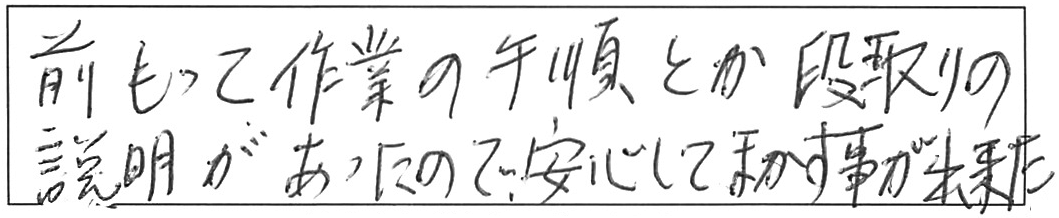 前もって作業の手順とか段取りの
説明があったので、安心してまかす事が出来た